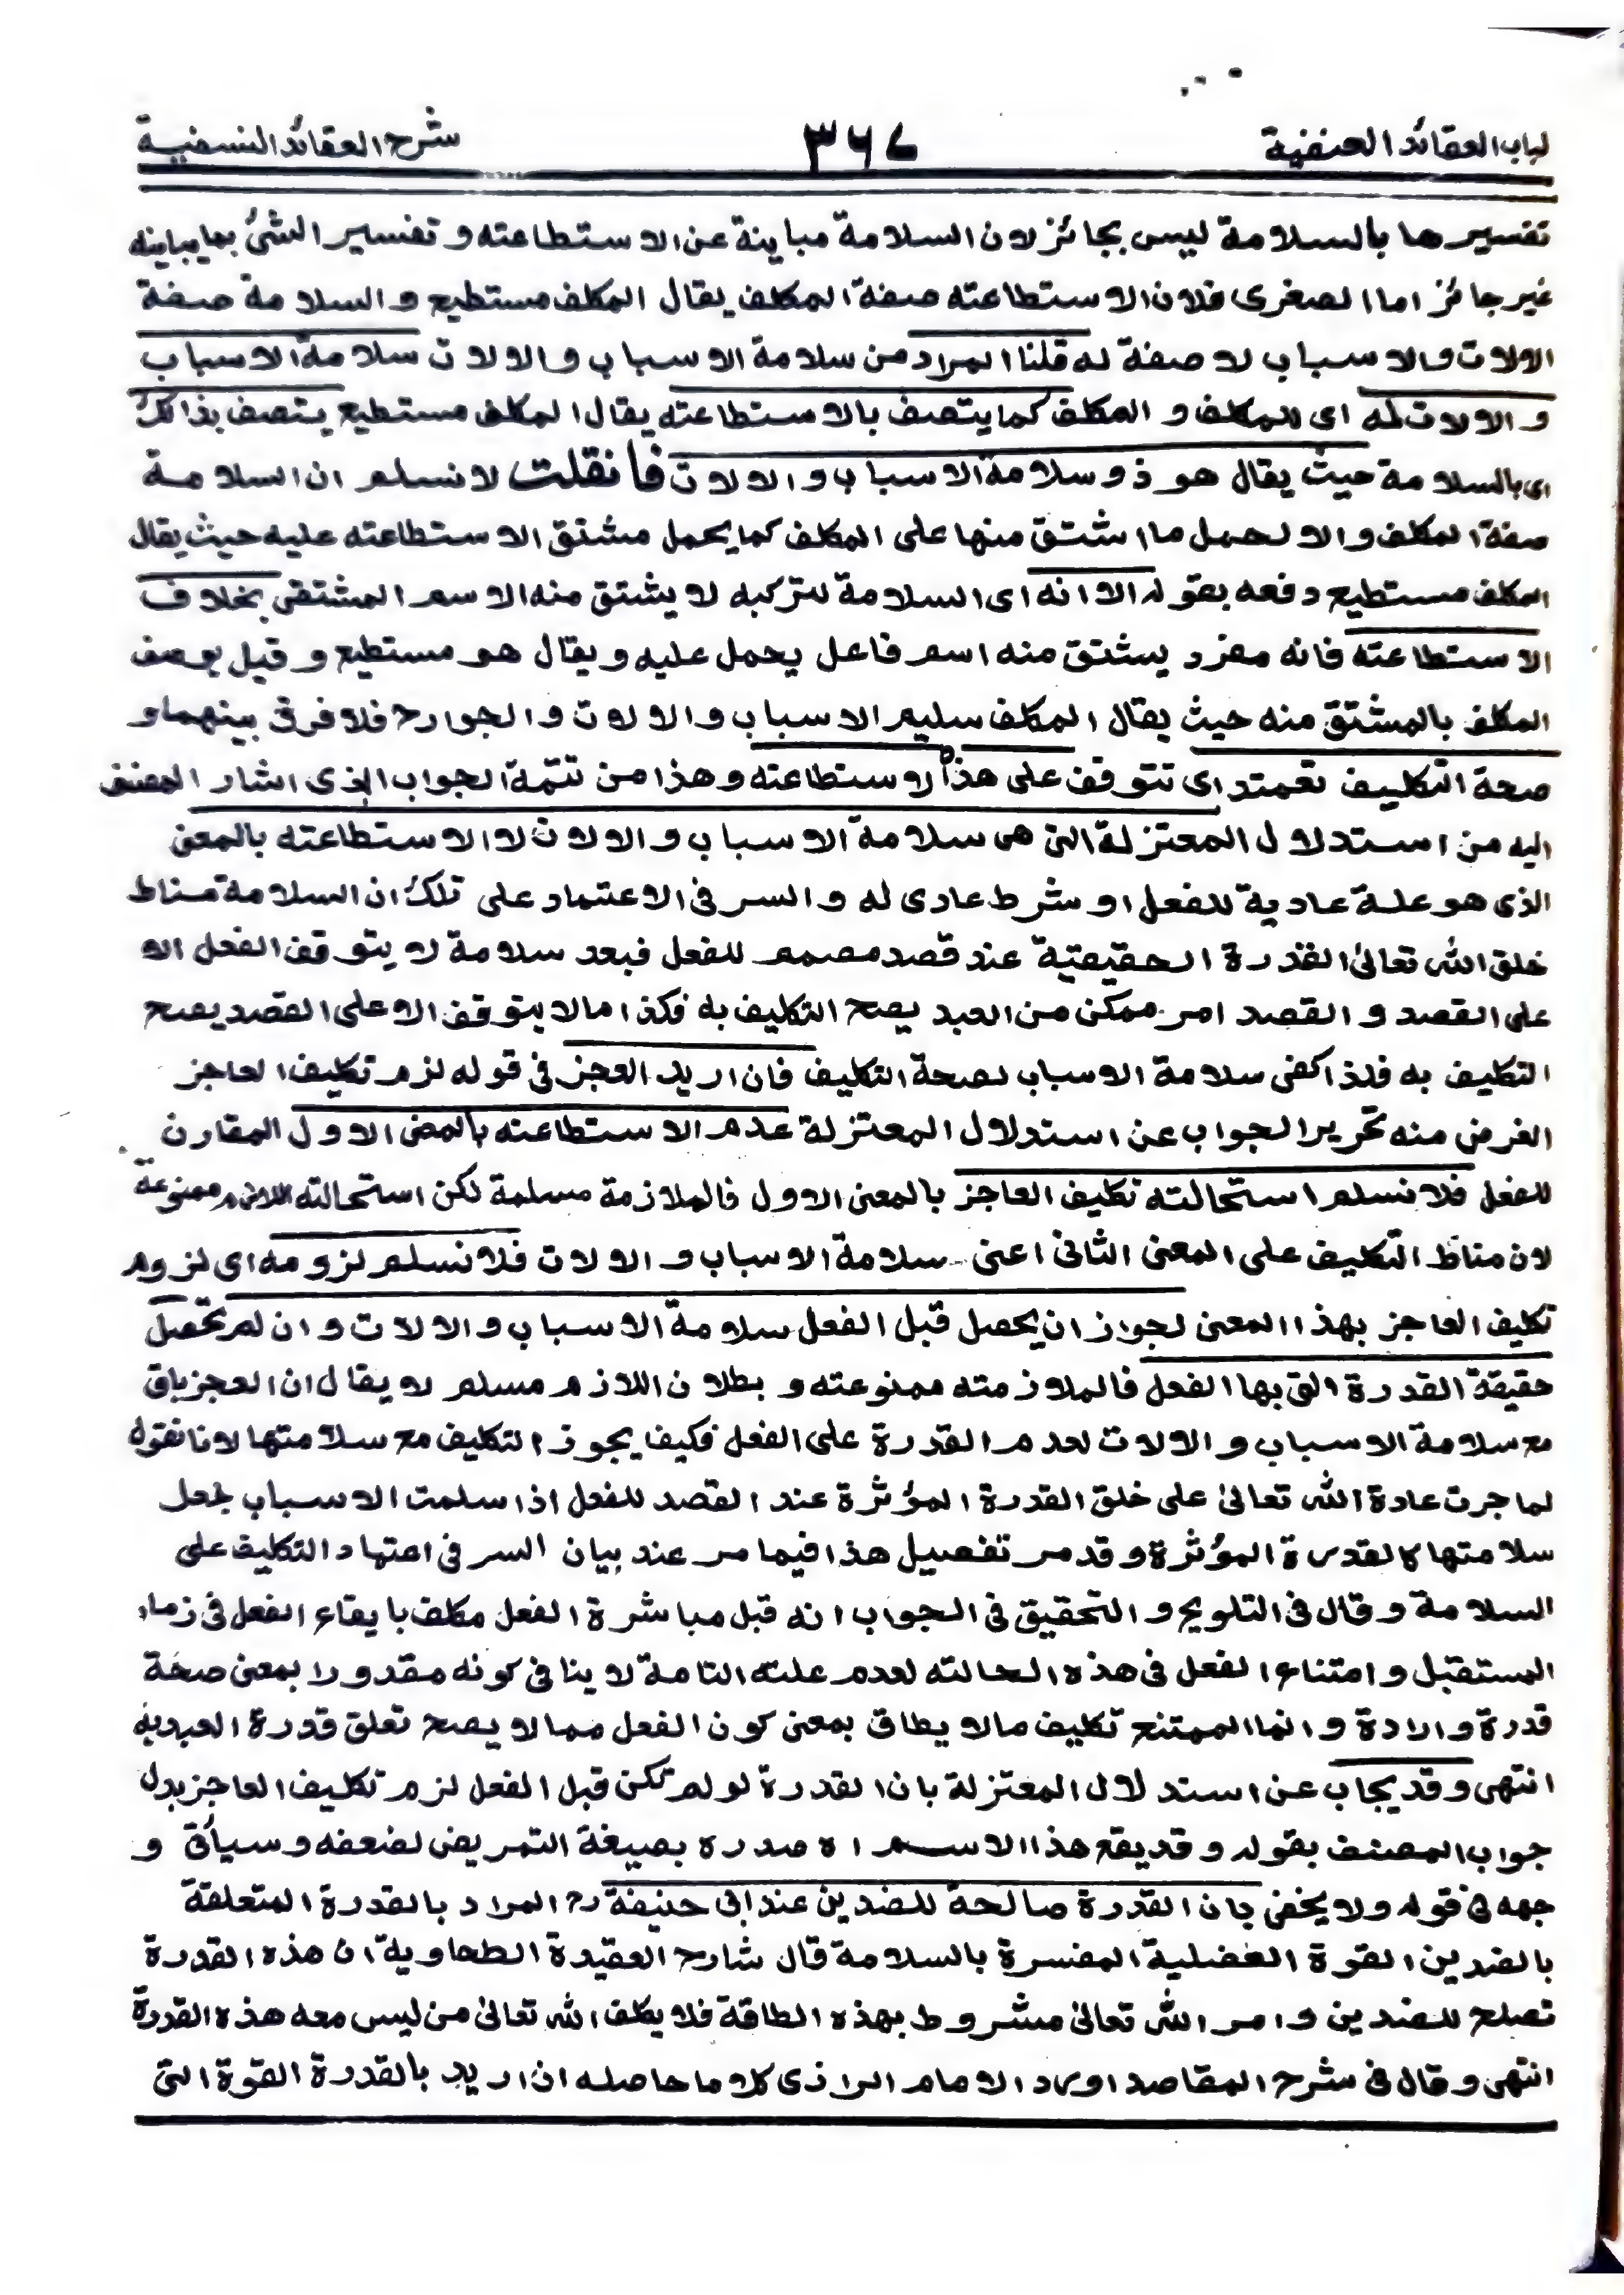 لباب العقائد الحنفية ٣٦٧ شرح العقائد النسفية
تفسيرها بالسلامة ليس بجائز لان السلامة مباينة عن الاستطاعته و تفسير الشئ بما يباينه
غير جائز اما الصغرى فلان الاستطاعته صفة المكلف يقال المكلف مستطيع و السلامة صفة
الالات والاسباب لا صفة له قلنا المراد من سلامة الاسباب والالات سلامة الاسباب
و الالات له اى للمكلف و المكلف كما يتصف بالاستطاعته يقال المكلف مستطيع يتصف بذالك
اى بالسلامة حيث يقال هو ذو سلامة الاسباب و الالات فأنقلت لا نسلم ان السلامة
صفة المكلف و الا لحمل ما اشتق منها على المكلف كما يحمل مشتق الاستطاعته عليه حيث يقال
المكلف مستطيع دفعه بقوله الا انه اى السلامة لتركبه لا يشتق منه الاسم المشتقى بخلاف
الاستطاعته فانه مفرد يشتق منه اسم فاعل يحمل عليه و يقال هو مستطيع و قيل يوصف
المكلف بالمشتق منه حيث يقال المكلف سليم الاسباب و الالات و الجوارح فلا فرق بينهما و
صحة التكليف تعمتد اى تتوقف على هذه الاستطاعته و هذا من تتمة الجواب الذى اشار المصنف
اليه من استدلال المعتزلة التى هى سلامة الاسباب و الالات لا الاستطاعته بالمعنى
الذى هو علة عادية للفعل او شرط عادى له و السر فى الاعتماد على تلك ان السلامة مناط
خلق الله تعالىٰ القدرة الحقيقية عند قصد مصمم للفعل فبعد سلامة لا يتوقف الفعل الا
على القصد و القصد امر ممكن من العبد يصح التكليف به فكذا مالا يتوقف الا على القصد يصح
التكليف به فلذا كفى سلامة الاسباب لصحة التكليف فان اريد العجز فى قوله لزم تكليف العاجز
الغرض منه تحرير الجواب عن استدلال المعتزلة عدم الاستطاعته بالمعنى الاول المقارن
للفعل فلا نسلم استحالته تكليف العاجز بالمعنى الاول فالملازمة مسلمة لكن استحالته اللازم ممنوعة
لان مناط التكليف على المعنى الثانى اعنى سلامة الاسباب و الالات فلا نسلم لزومه اى لزوم
تكليف العاجز بهذا المعنى لجواز ان يحصل قبل الفعل سلامة الاسباب و الالات و ان لم تحصل
حقيقة القدرة التى بها الفعل فالملازمته ممنوعته و بطلان اللازم مسلم لا يقال ان العجز باق
مع سلامة الاسباب و الالات لعدم القدرة على الفعل فكيف يجوز التكليف مع سلامتها لانا نقول
لما جرت عادة الله تعالىٰ على خلق القدرة المؤثرة عند القصد للفعل اذا سلمت الاسباب لجعل
سلامتها كالقدرة المؤثرة و قد مر تفصيل هذا فيما مر عند بيان السر فى اعتهاد التكليف على
السلامة و قال فى التلويح و التحقيق فى الجواب انه قبل مباشرة الفعل مكلف بايقاع الفعل فى زمان
المستقبل و امتناع الفعل فى هذه الحالته لعدم علته التامة لا ينافى كونه مقدورا بمعنى صحة
قدرة و الادة و انما الممتنع تكليف مالا يطاق بمعنى كون الفعل مما لا يصح تعلق قدرة العبد به
انتهى و قد يجاب عن استدلال المعتزلة بان القدرة لو لم تكن قبل الفعل لزم تكليف العاجز بدل
جواب المصنف بقوله و قد يقع هذا الاسم اه صدره بصيغة التمريض لضعفه و سيأتى و
جهه فى قوله ولا يخفى بان القدرة صالحة للضدين عند ابى حنيفة رح المراد بالقدرة المتعلقة
بالضدين القوة العضلية المفسرة بالسلامة قال شارح العقيدة الطحاوية ان هذه القدرة
تصلح للضدين و امر الله تعالىٰ مشروط بهذه الطاقة فلا يكلف الله تعالىٰ من ليس معه هذه القدرة
انتهى و قال فى شرح المقاصد اورد الامام الرازى كلاما حاصله ان اريد بالقدرة القوة التى